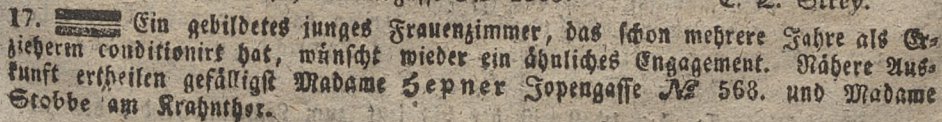 17. Ein gebildetes junges Frauenzimmer, das schon mehrere Jahre als Er-
zieherin conditionirt hat, wünscht wieder ein ähnliches Engagement. Nähere Aus-
kunft ertheilen gefälligst Madame Hepner Jopengasse № 568. und Madame
Stobbe am Krahnthor.